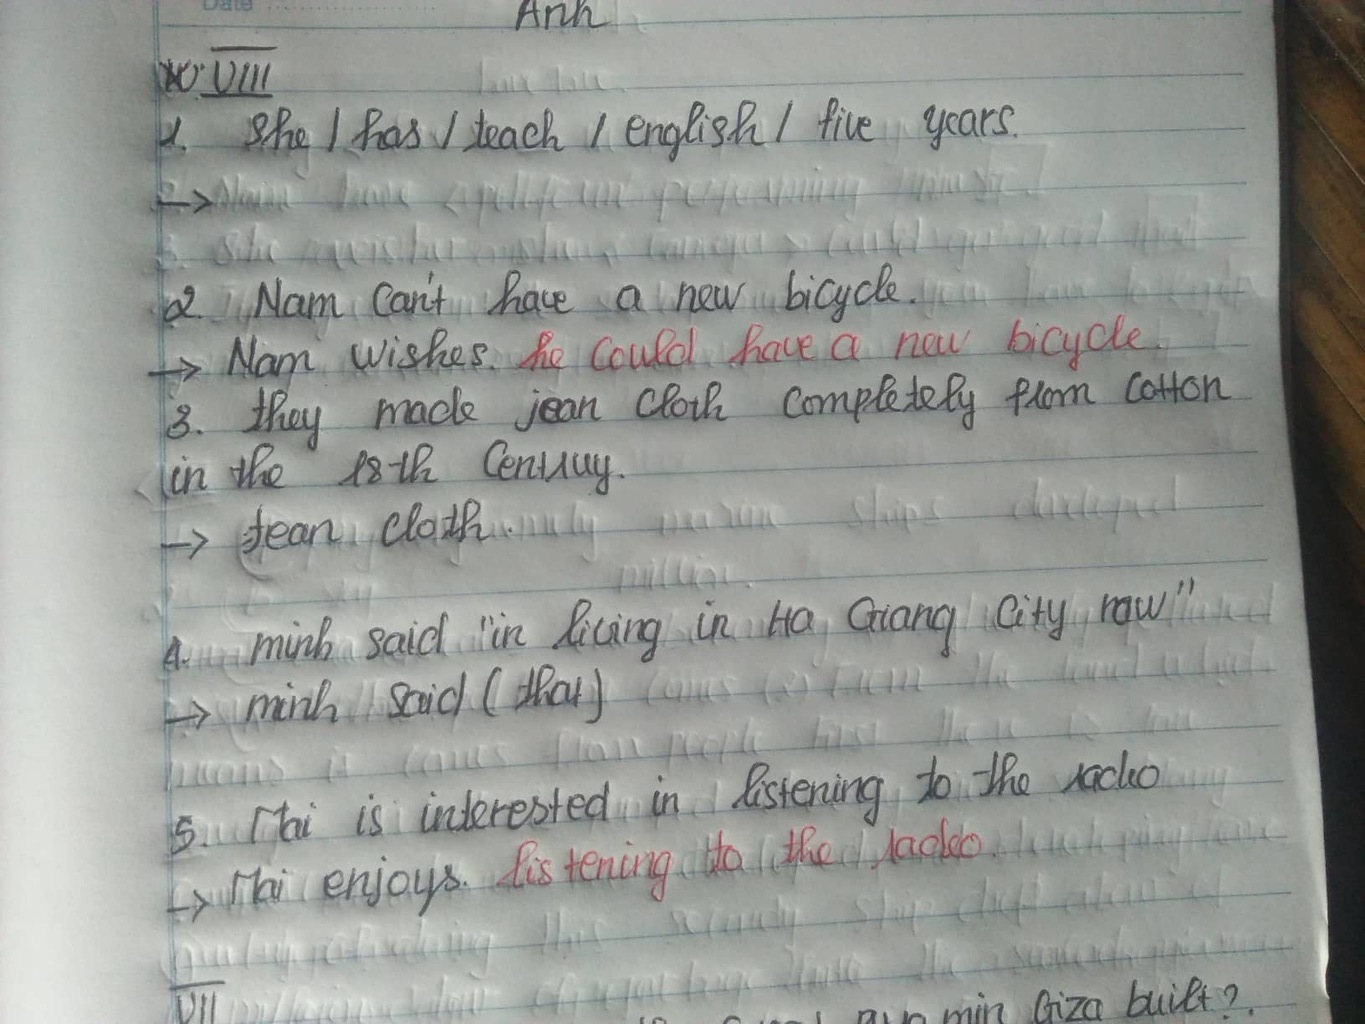 Date
Anh
VIII
1. She / has / teach / english / five years.
→
2. Nam can't have a new bicycle.
→ Nam wishes. he could have a new bicycle.
3. they made jean cloth completely from cotton
in the 18th Centuuy.
→ Jean cloth.
4. minh said "in living in Ha Giang City now"
→ minh said (that)
5. Mai is interested in listening to the radio
→ Mai enjoys. listening to the radio.
VII
min Giza built?